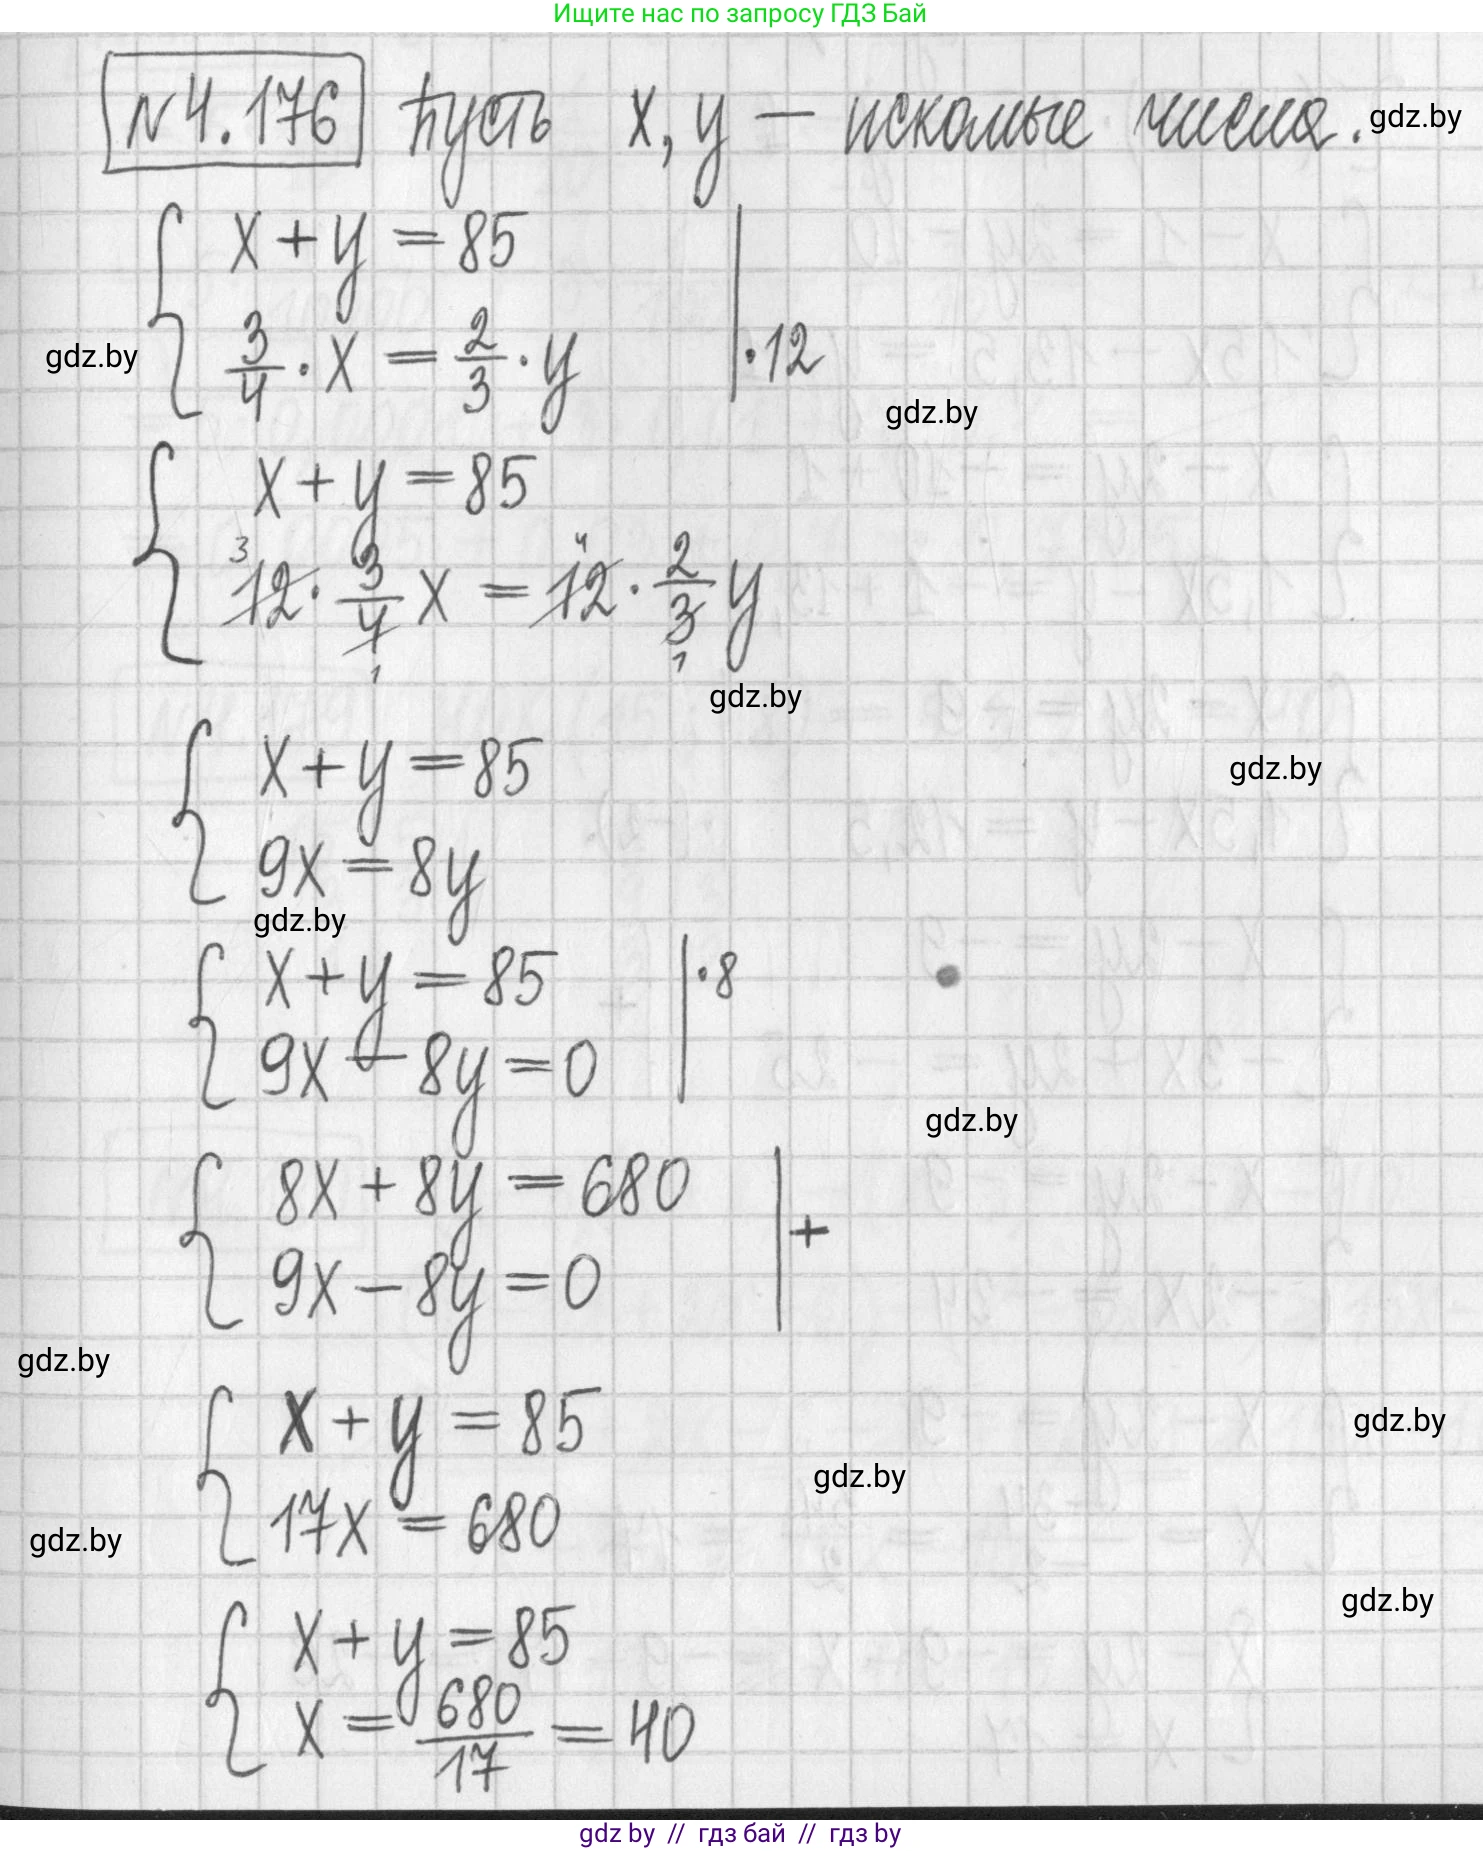 Ищите нас по запросу ГДЗ Бай
№4.176 Пусть x, y — искомые числа.
gdz.by
x + y = 85
3/4 · x = 2/3 · y | ·12
gdz.by
gdz.by
x + y = 85
3 4
12 · 3/4 x = 12 · 2/3 y
1 1
gdz.by
x + y = 85
gdz.by
9x = 8y
gdz.by
x + y = 85 | ·8
9x — 8y = 0
gdz.by
8x + 8y = 680
9x — 8y = 0 | +
gdz.by
x + y = 85
gdz.by
gdz.by
17x = 680
gdz.by
gdz.by
x + y = 85
x = 680/17 = 40
gdz.by // гдз бай // гдз by